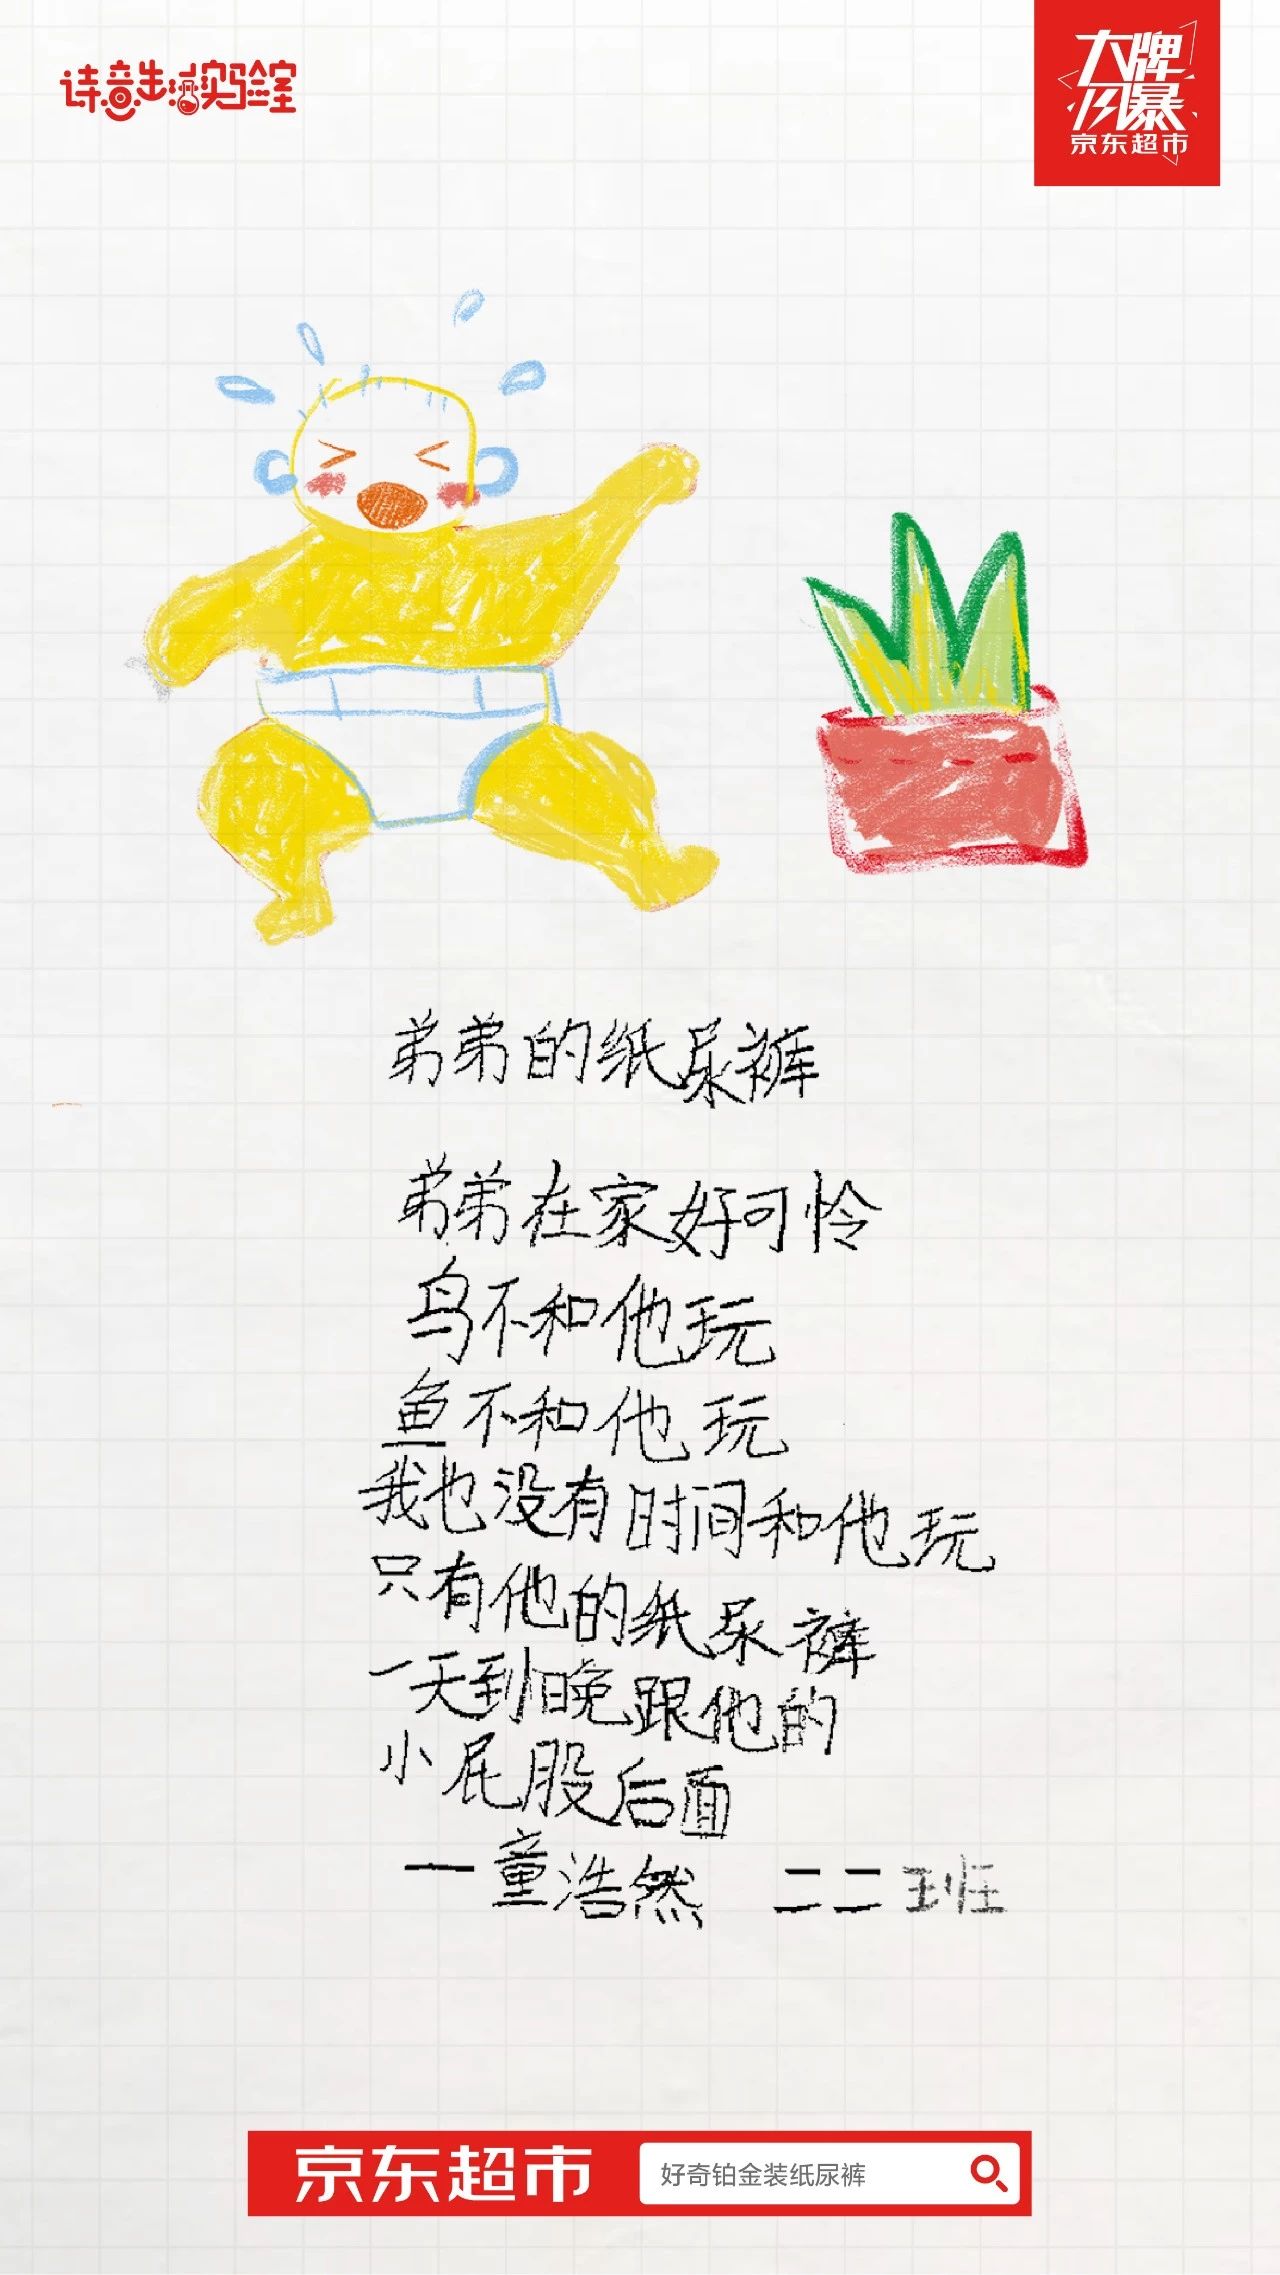 诗意生活实验室
大牌风暴
京东超市
弟弟的纸尿裤
弟弟在家好可怜
鸟不和他玩
鱼不和他玩
我也没有时间和他玩
只有他的纸尿裤
一天到晚跟他的
小屁股后面
—童浩然 二二班
京东超市 好奇铂金装纸尿裤